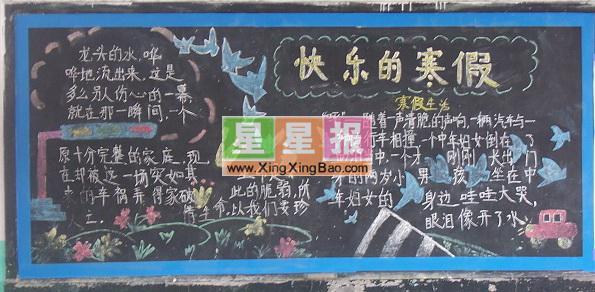 快乐的寒假
寒假生活
"呯"，随着一声清脆的声响，一辆汽车与一
行车相撞，一个中年妇女倒在了
中。一个才刚刚长出门
牙的两岁小男孩坐在中
年妇女的身边哇哇大哭，
眼泪像开了水
龙头的水，哗
哗地流出来，这是
多么别人伤心的一幕，
就在那一瞬间，一个
原十分完整的家庭，现
在却被这一场突如其
来的车祸弄得家破
人亡。
此的脆弱，所
以我们要珍
生命，
星星报
www.XingXingBao.com